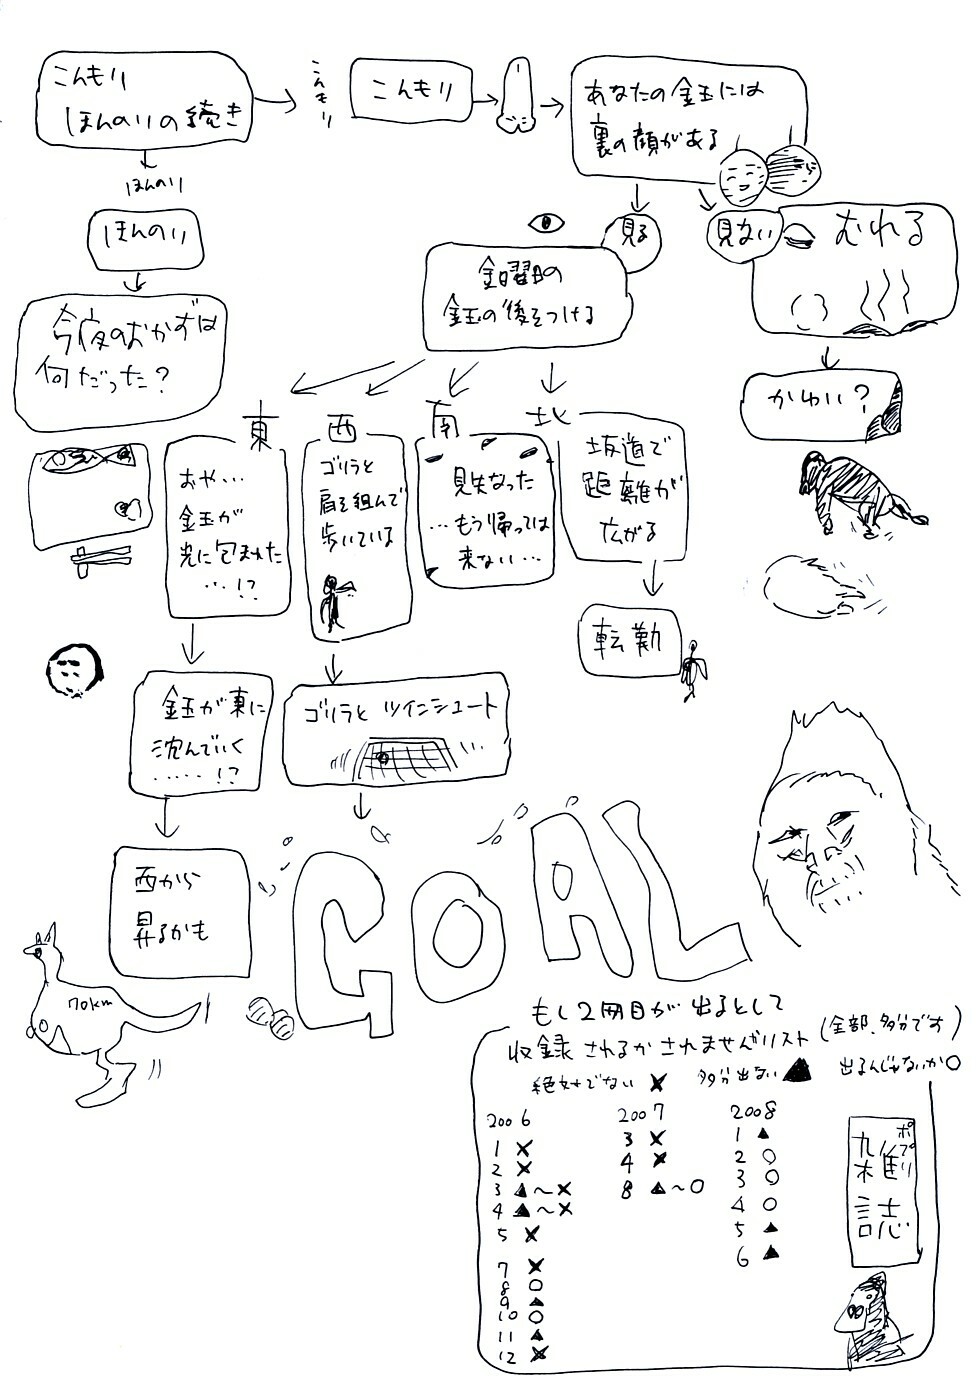 こんもり
ほんのりの続き
こんもり
こんもり
あなたの金玉には
裏の顔がある
ほんのり
ほんのり
今夜のおかずは
何だった?
見る
見ない
むれる
金曜日の
金玉の後をつける
かわい?
東
西
南
北
おや…
金玉が
光に包まれた
…!?
ゴリラと
肩を組んで
歩いている
見失なった
…もう帰っては
来ない…
坂道で
距離が
広がる
転勤
金玉が東に
沈んでいく
……!?
ゴリラと ツインシュート
西から
昇るかも
GOAL
70km
もし2冊目が出るとして
収録されるかされませんがリスト(全部、多分です)
絶対でない ✕ 多分出ない ▲ 出るんじゃないか○
2006
1 ✕
2 ✕
3 ▲〜✕
4 ▲〜✕
5 ✕
7 ✕
8 ○
9 ▲
10 ○
11 ▲
12 ✕
2007
3 ✕
4 ✕
8 ▲〜○
2008
1 ▲
2 ○
3 ○
4 ○
5 ▲
6 ▲
ポプリ
雑誌